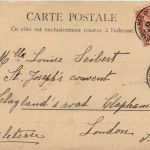 CARTE POSTALE
Ce côté est exclusivement réservé à l'adresse.
Mlle Louise Seibert
St. Joseph's convent
road Clapham
London